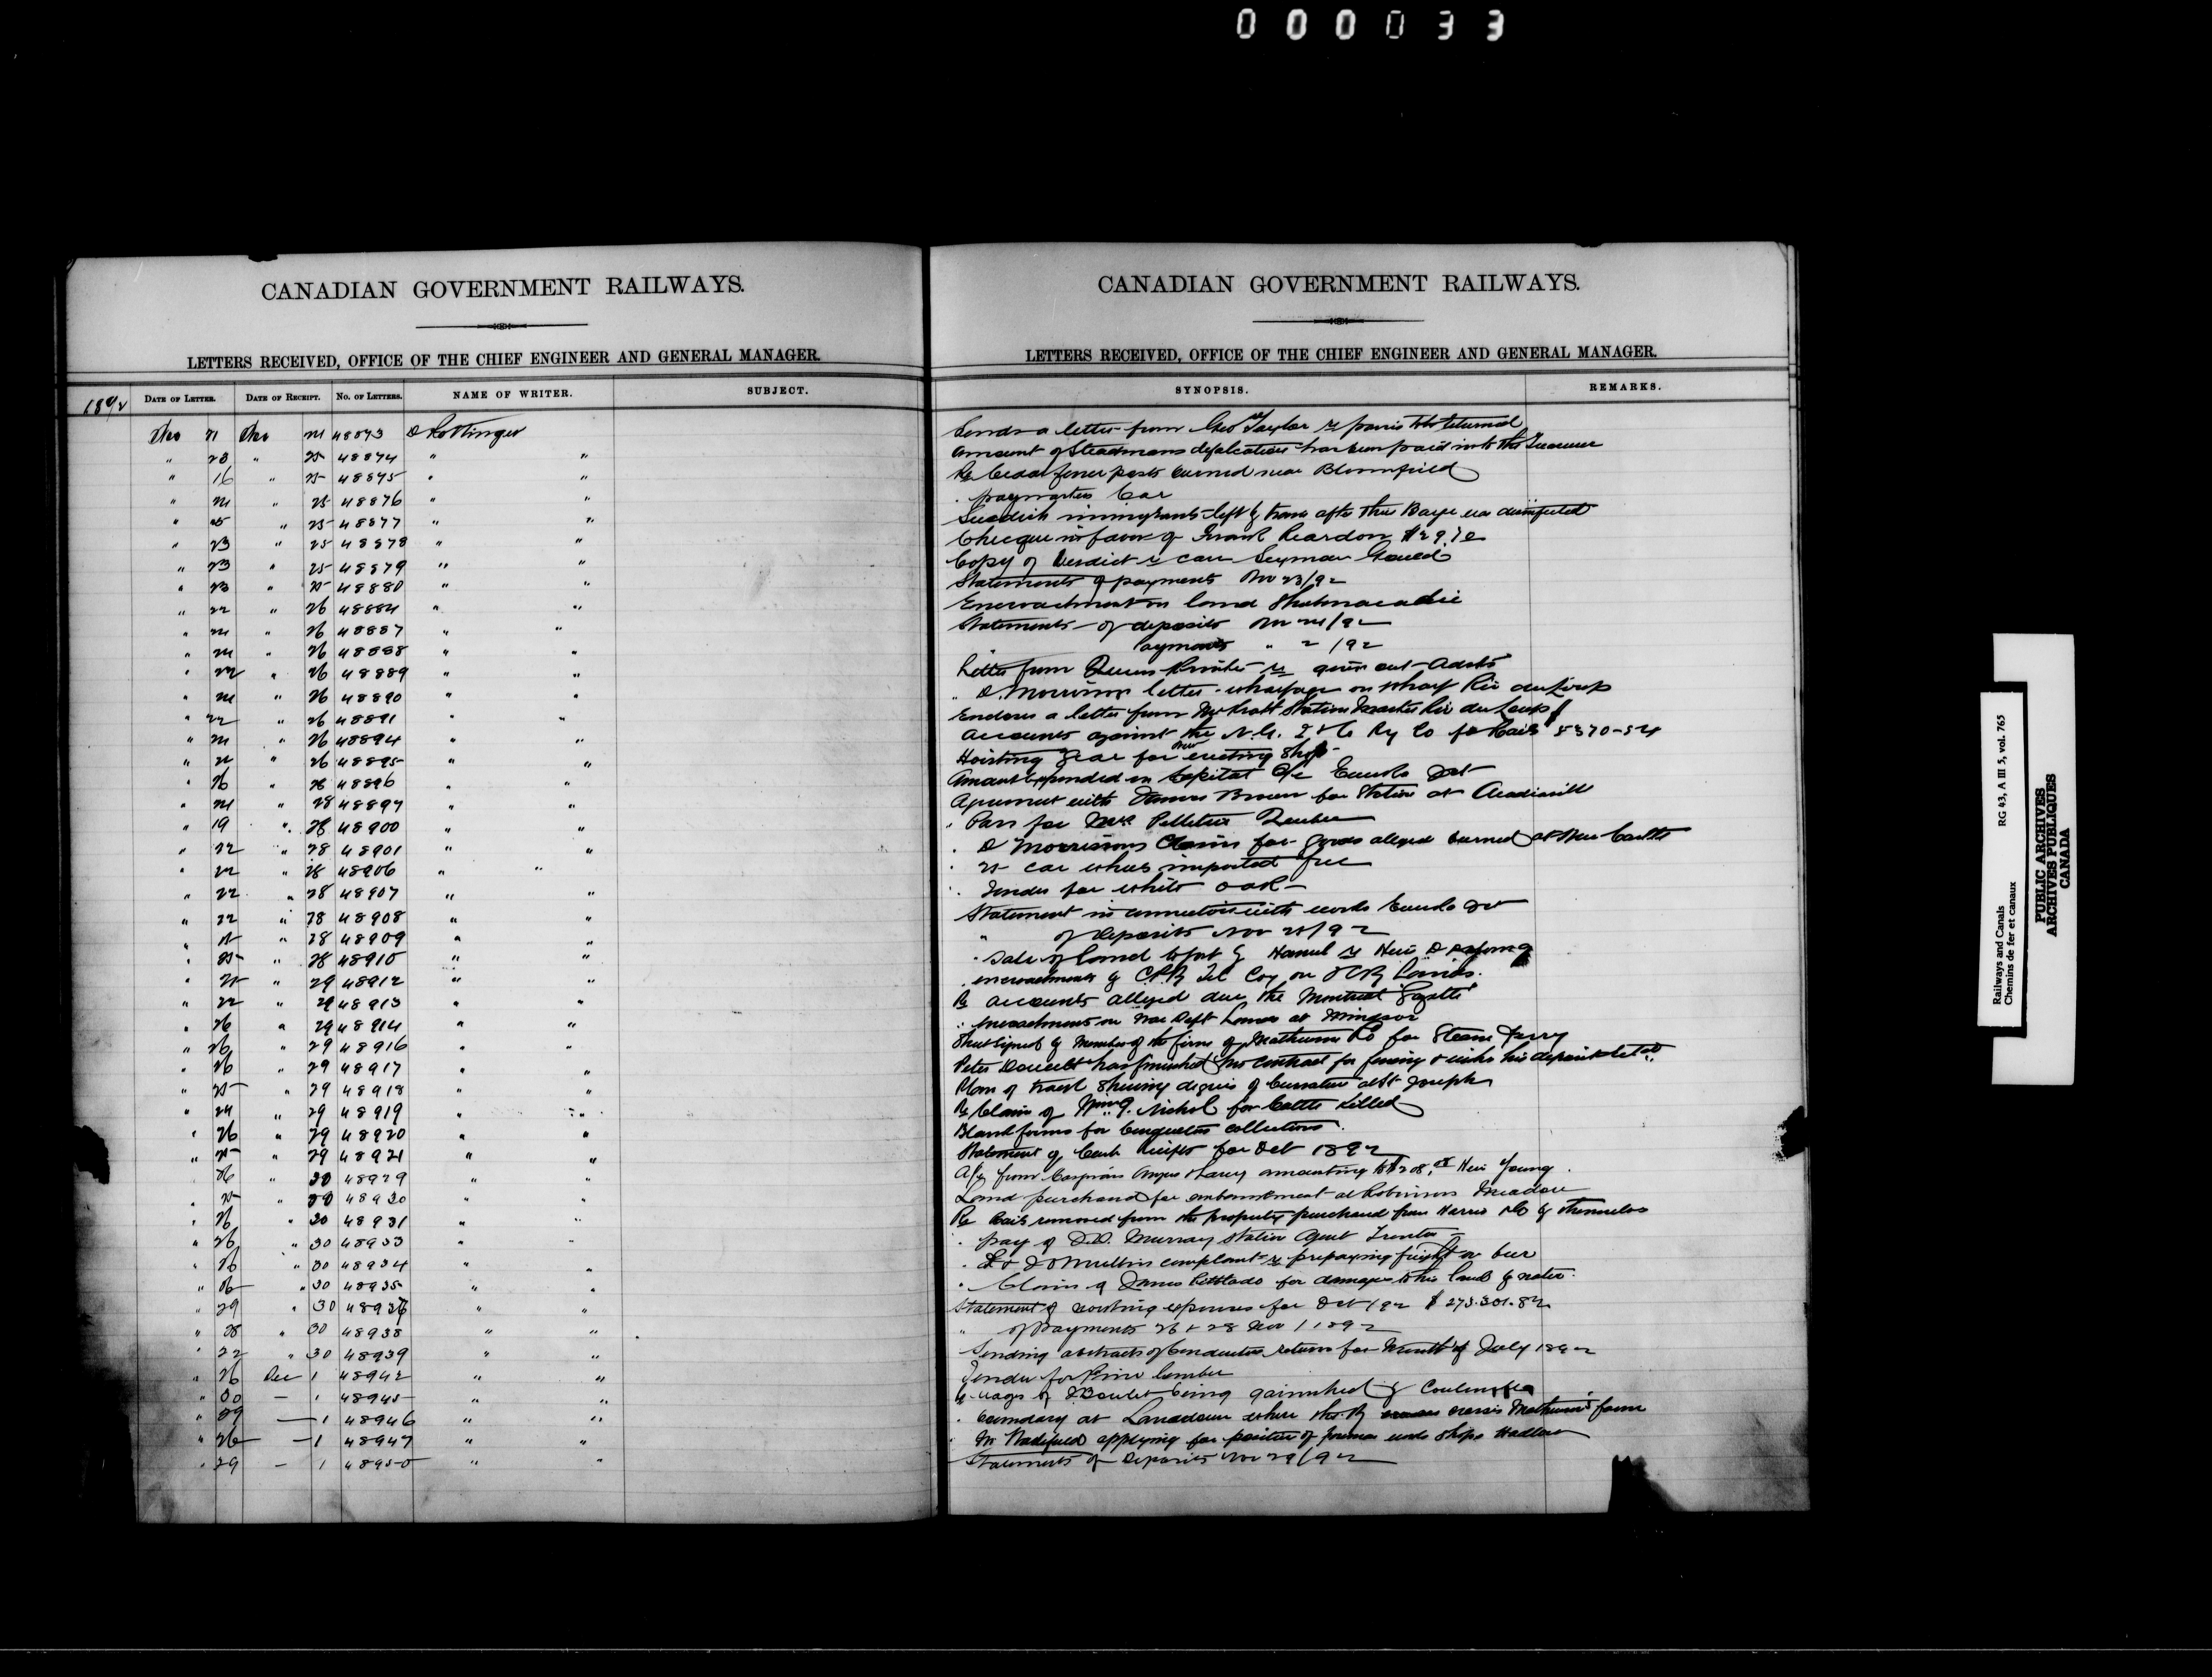 000033
CANADIAN GOVERNMENT RAILWAYS.
LETTERS RECEIVED, OFFICE OF THE CHIEF ENGINEER AND GENERAL MANAGER.
1892 DATE OF LETTER. DATE OF RECEIPT. NO. OF LETTERS. NAME OF WRITER. SUBJECT.
Nov 21 Nov 24 48873 D Pottinger
" 23 " 25 48874 " "
" 16 " 25 48875 " "
" 24 " 25 48876 " "
" 25 " 25 48877 " "
" 23 " 25 48878 " "
" 23 " 25 48879 " "
" 23 " 25 48880 " "
" 22 " 26 48884 " "
" 24 " 26 48887 " "
" 24 " 26 48888 " "
" 22 " 26 48889 " "
" 24 " 26 48890 " "
" 22 " 26 48891 " "
" 24 " 26 48894 " "
" 26 48895 " "
" 26 " 28 48896 " "
" 24 " 28 48897 " "
" 19 " 28 48900 " "
" 22 " 28 48901 " "
" 22 " 28 48906 " "
" 22 " 28 48907 " "
" 22 " 28 48908 " "
" 25 " 28 48909 " "
" 25 " 28 48910 " "
" 25 " 29 48912 " "
" 22 " 29 48913 " "
" 26 " 29 48914 " "
" 26 " 29 48916 " "
" 26 " 29 48917 " "
" 25 " 29 48918 " "
" 24 " 29 48919 " "
" 26 " 29 48920 " "
" 25 " 29 48921 " "
" 26 " 30 48929 " "
" 25 " 30 48930 " "
" 26 " 30 48931 " "
" 26 " 30 48933 " "
" 26 " 30 48934 " "
" 26 " 30 48935 " "
" 29 " 30 48936 " "
" 28 " 30 48938 " "
" 22 " 30 48939 " "
" 26 Dec 1 48942 " "
" 30 — 1 48945 " "
" 29 — 1 48946 " "
" 26 — 1 48947 " "
" 29 — 1 48950 " "
CANADIAN GOVERNMENT RAILWAYS.
LETTERS RECEIVED, OFFICE OF THE CHIEF ENGINEER AND GENERAL MANAGER.
SYNOPSIS. REMARKS.
Sends a letter from Geo Taylor re passes to be returned
Amount of Steadmans defalcation has been paid into the
Re Cedar fence posts burned near Bloomfield
" paymasters Car
immigrants left by train after their Bagge was disinfected
Cheque in favor of Frank Reardon $29.70
Copy of Verdict re case Seyman Gould
Statements of payments Nov 23/92
Encroachment on land Shubenacadie
Statements of deposits Nov 24/92
" Payments " " /92
Letter from Queens Printer re
" D. Morrisons letter wharfage on wharf Riv du Loup
Encloses a letter from Mr Pratt Station Master Riv du Loup
Accounts against the N.G. I & C Ry Co for Rails $ 5370-54
Hoisting Gear for new erecting Shop
Amount expended on Capital a/c
Agreement with James Brown for Station at
" Pass for Mrs Pelletier Quebec
" D Morrisons Claim for goods alleged burned at New Castle
" 25 car wheels imported free
" Tender for white oak
Statement in connection with works
" of deposits Nov 25/92
" Sale of land to
" encroachments by C.P.R. Tel Coy on ICRy Lands.
Re accounts alleged due the Montreal "Gazette"
" encroachments on War Dept Lands at Windsor
Sheet signed by Members of the firm of Co for Steam Ferry
Peter Doucett has finished his contract for fencing & wishes his deposit
Plan of track shewing degrees of Curvature at St Joseph
Re Claim of Wm G. Nichol for Cattle killed
Blank forms for Conductors collections.
Statement of Cash Receipts for Oct 1892
A/c from amounting to $208
Land purchased for embankment at Robinsons Meadow
Re Rails removed from the property purchased from Harris & Co by themselves
" pay of J.D. Murray Station Agent Trenton
" complaint re prepaying freight on beer
" Claim of James for damages to his land by water.
Statement of working expenses for Oct /92 $ 273.301.82
" of Payments 26 & 28 Nov / 1892
Sending abstracts of Conductors returns for Month of July 1892
Tender for Pine lumber
Re wages of being garnisheed by
" boundary at Lansdowne where the Ry crosses farm
" applying for position of foreman
Statements of Deposits Nov 29/92
Railways and Canals RG 43, A III 5, vol. 765
Chemins de fer et canaux
PUBLIC ARCHIVES
ARCHIVES PUBLIQUES
CANADA